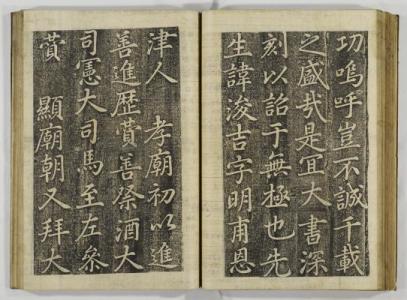 功嗚呼豈不誠千載
之感哉是宜大書深
刻以詔于無極也先
生諱浚吉字明甫恩
津人　孝廟初以進
善進歷贊善祭酒大
司憲大司馬至左參
贊　顯廟朝又拜大